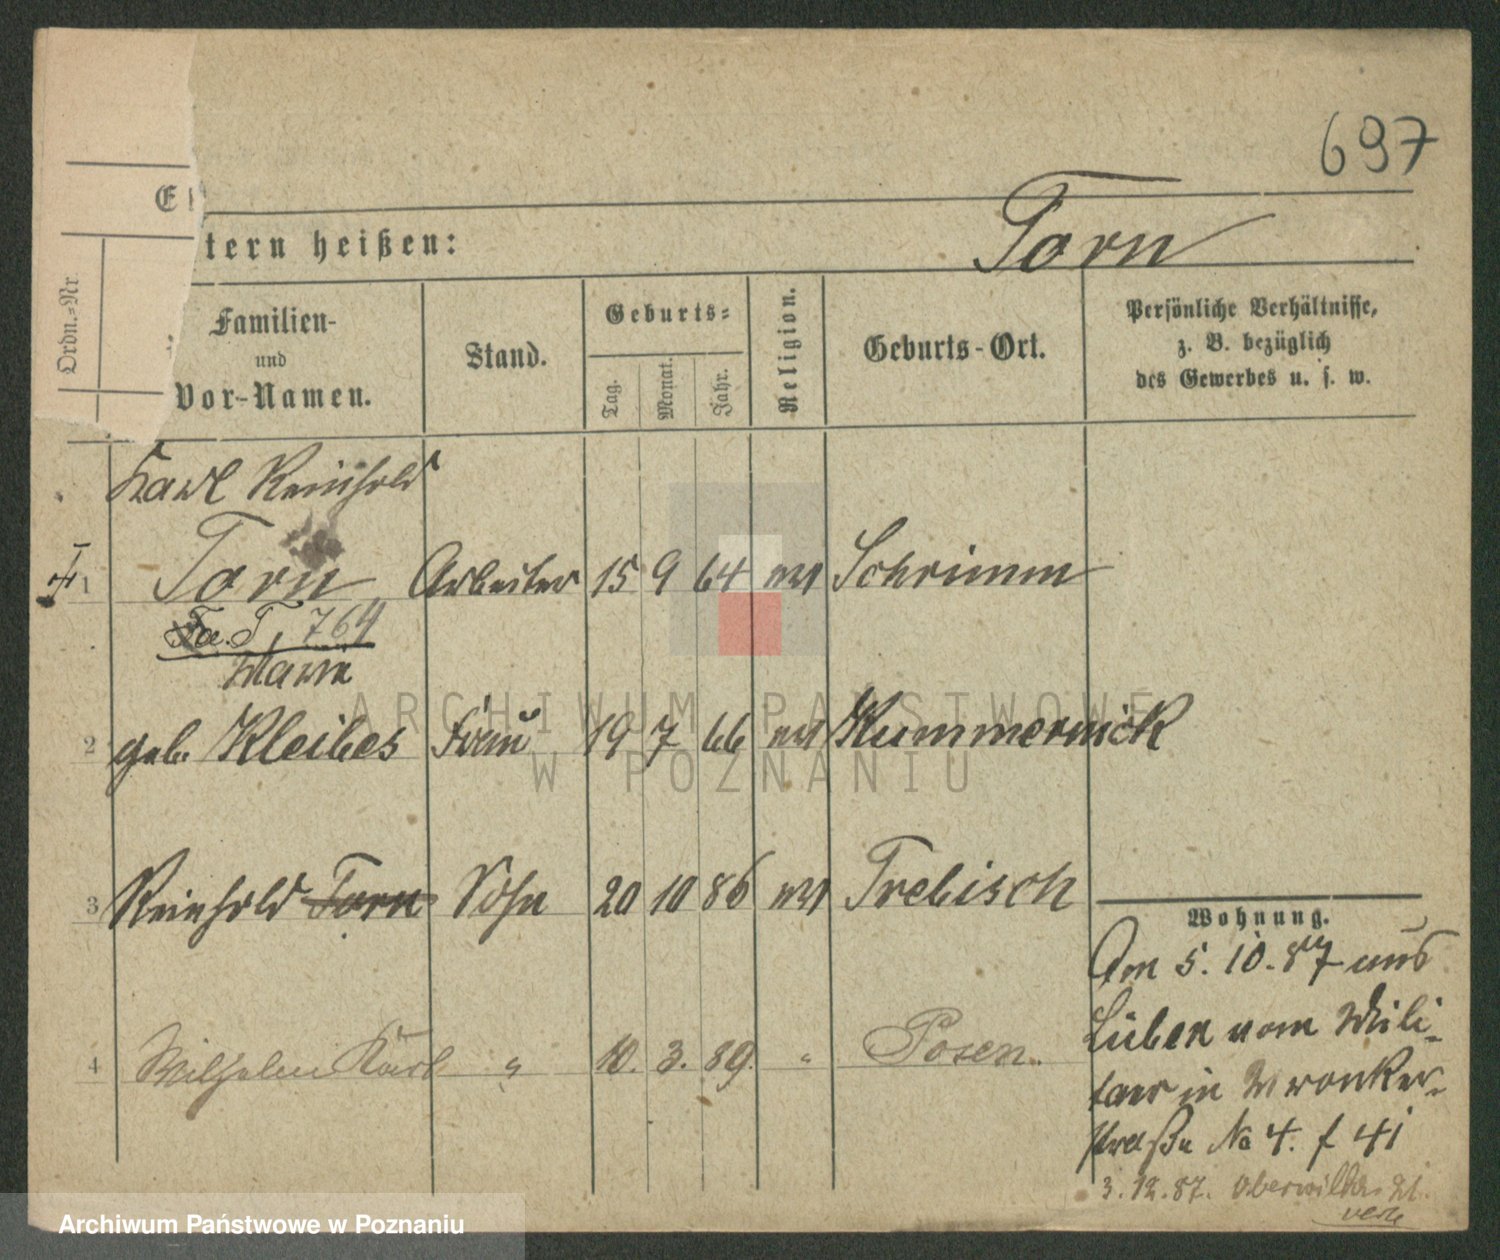 697
E
tern heißen:
Torn
Ordn.-Nr
Familien-
und
Vor-Namen.
Stand.
Geburts-
Tag.
Monat.
Jahr.
Religion.
Geburts-Ort.
Persönliche Verhältnisse,
z. B. bezüglich
des Gewerbes u. s. w.
Karl Reinhold
1 Torn Arbeiter 15 9 64 ev Schrimm
764
Marie
2 geb. Kleibes Frau 19 7 66 ev Kummernick
3 Reinhold Torn Sohn 20 10 86 ev Trebisch
Wohnung.
Am 5. 10. 87 aus
Lüben vom Mili-
taer in Wronker-
straße No 4. f 41
4 Wilhelm Karl " 10. 3. 89. " Posen.
3. 12. 87. Oberwilda 21.
ARCHIWUM PAŃSTWOWE
W POZNANIU
Archiwum Państwowe w Poznaniu